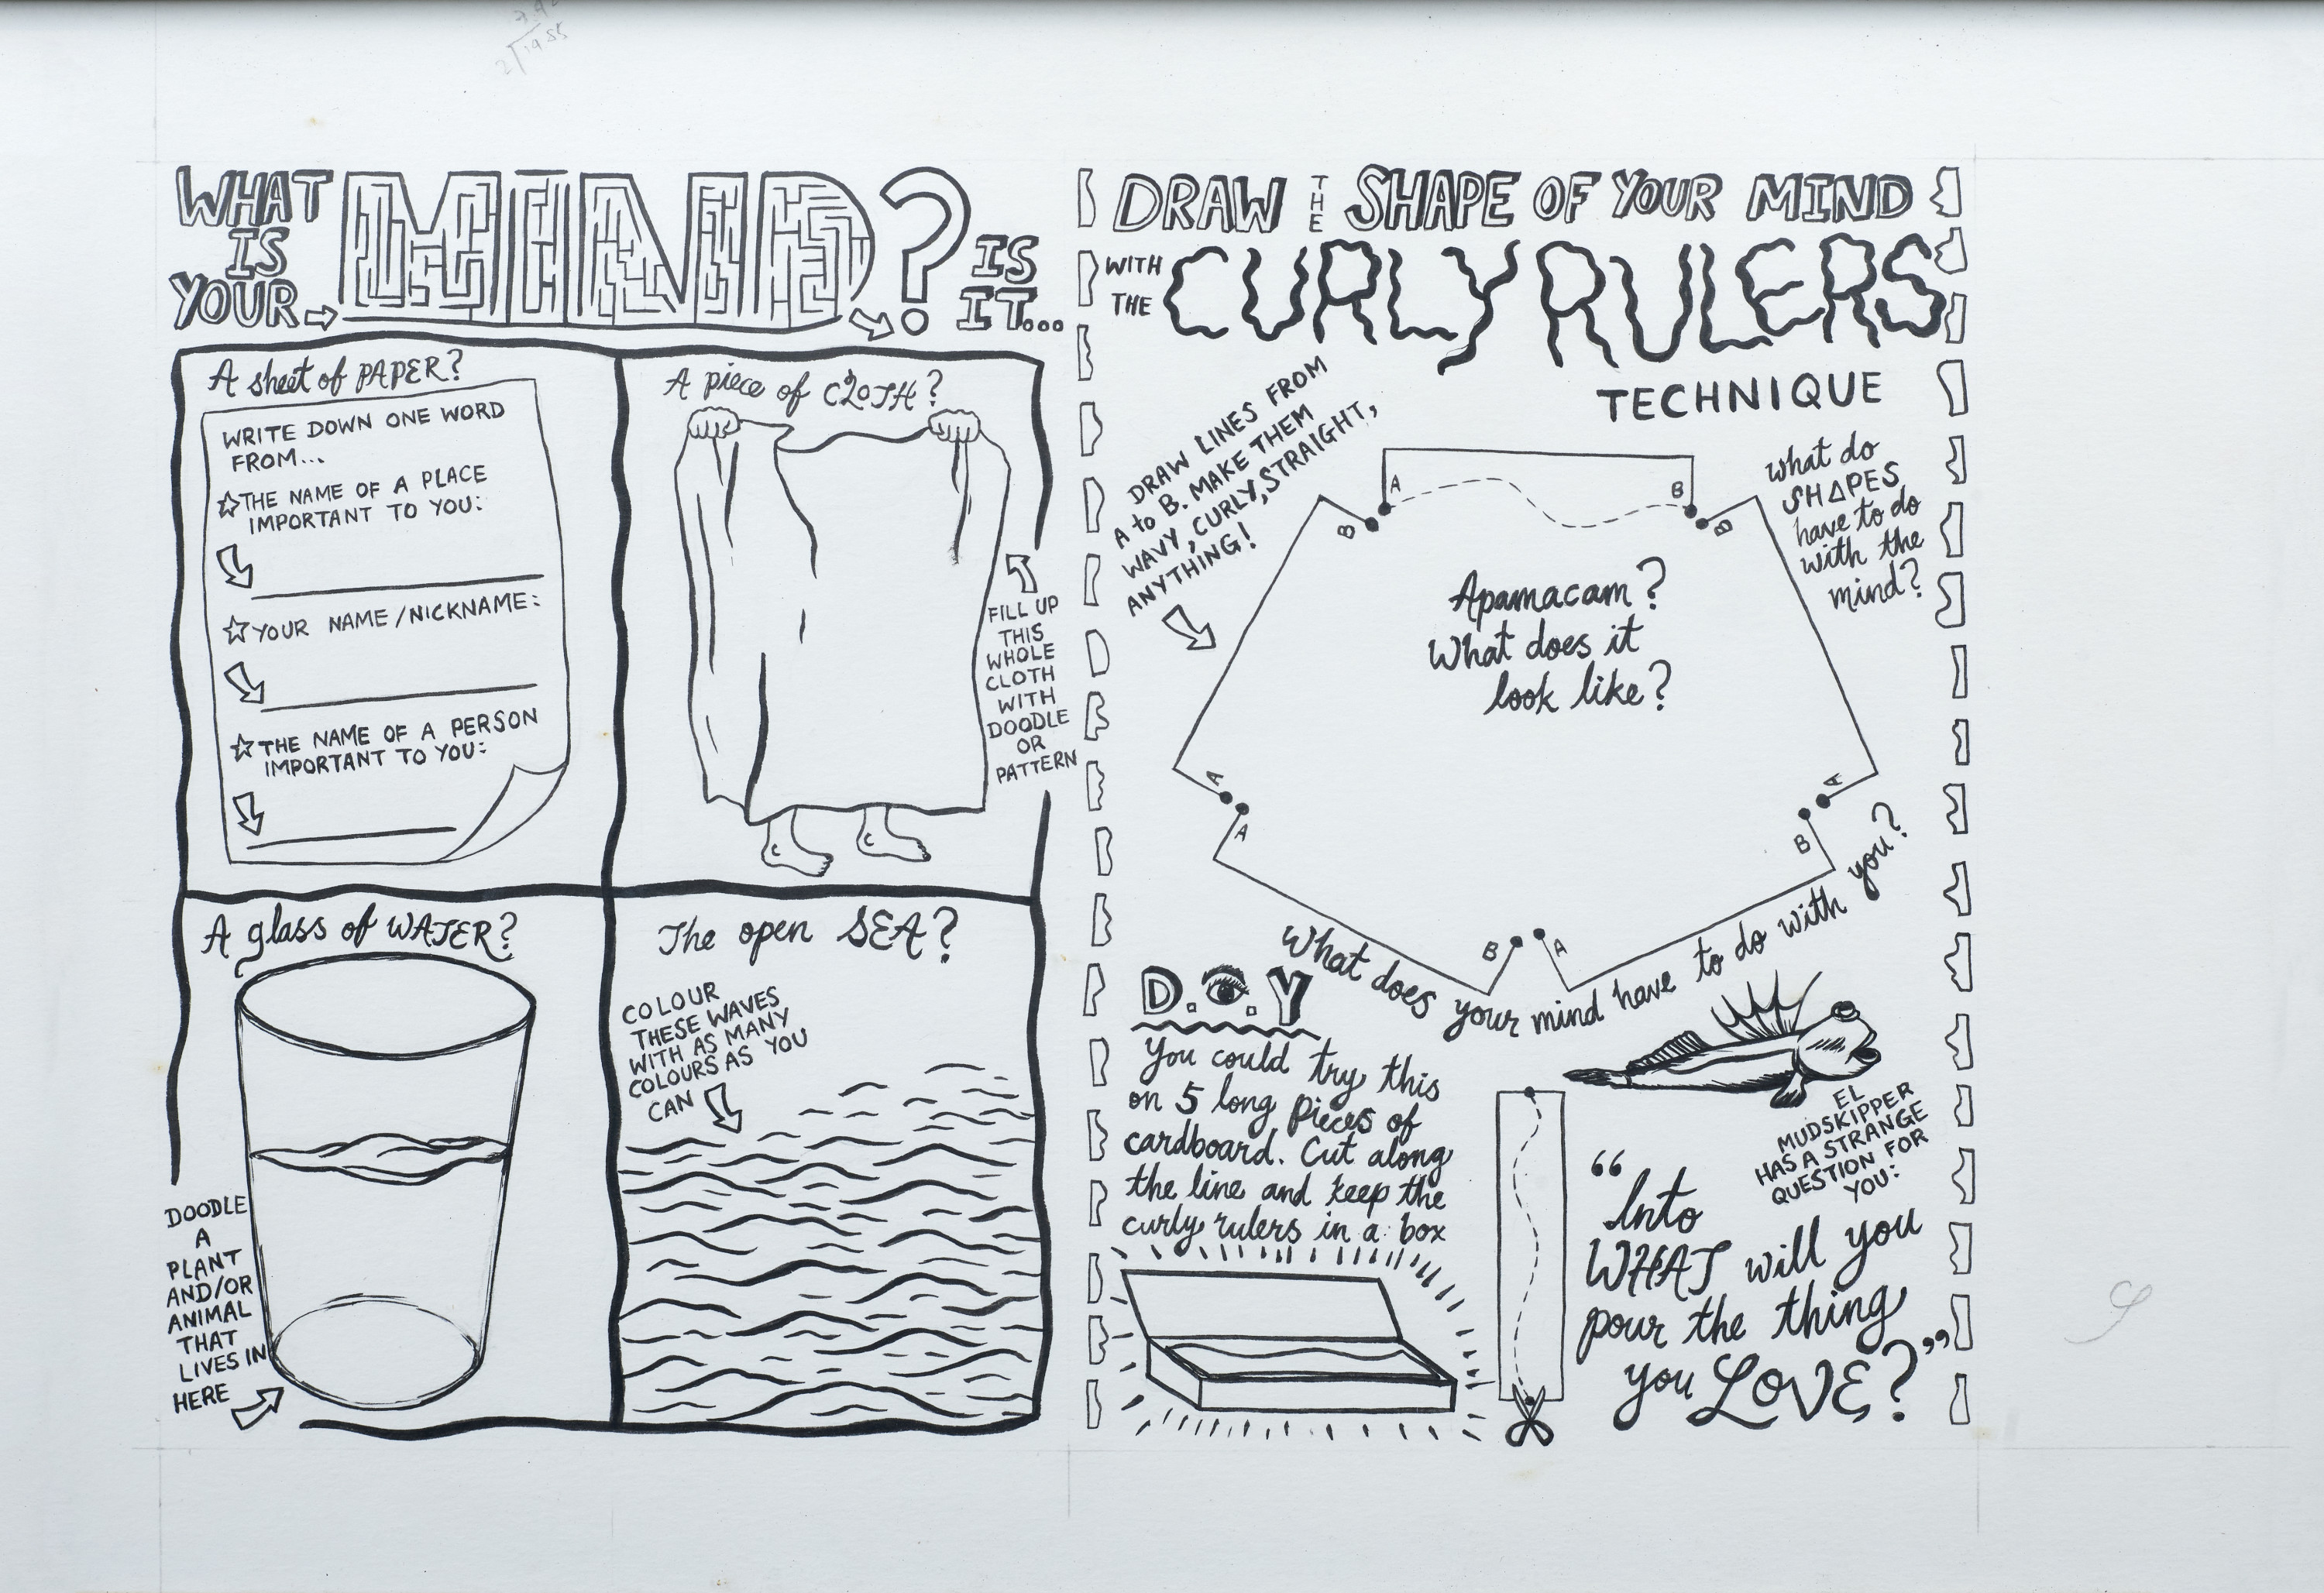 WHAT
IS
YOUR
MIND?
IS
IT...
A sheet of PAPER?
WRITE DOWN ONE WORD
FROM...
THE NAME OF A PLACE
IMPORTANT TO YOU:
YOUR NAME/NICKNAME:
THE NAME OF A PERSON
IMPORTANT TO YOU:
A piece of CLOTH?
FILL UP
THIS
WHOLE
CLOTH
WITH
DOODLE
OR
PATTERN
A glass of WATER?
DOODLE
A
PLANT
AND/OR
ANIMAL
THAT
LIVES IN
HERE
The open SEA?
COLOUR
THESE WAVES
WITH AS MANY
COLOURS AS YOU
CAN
DRAW THE SHAPE OF YOUR MIND
WITH
THE
CURLY RULERS
TECHNIQUE
DRAW LINES FROM
A to B. MAKE THEM
WAVY, CURLY, STRAIGHT,
ANYTHING!
what do
SHAPES
have to do
with the
mind?
A
B
B
B
Apamacam?
What does it
look like?
A
A
A
B
B
A
What does your mind have to do with you?
D.I.Y
You could try this
on 5 long pieces of
cardboard. Cut along
the line and keep the
curly rulers in a box
EL
MUDSKIPPER
HAS A STRANGE
QUESTION FOR
YOU:
"Into
WHAT will you
pour the thing
you LOVE?"